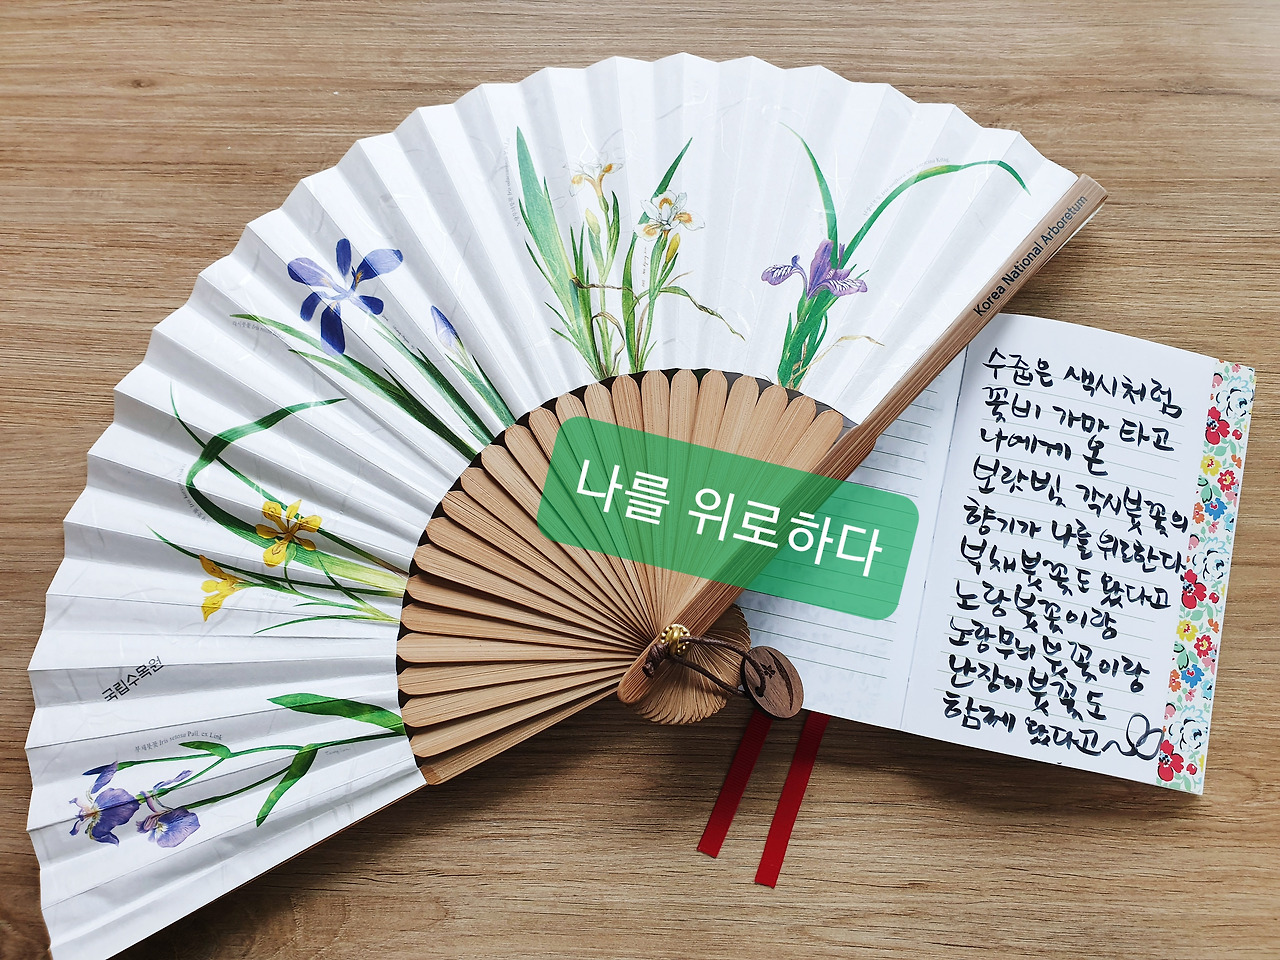 Korea National Arboretum
수줍은 색시처럼
꽃비 가마 타고
나에게 온
보랏빛 각시붓꽃의
향기가 나를 위로한다.
부채붓꽃도 왔다고
노랑붓꽃이랑
노랑무늬붓꽃이랑
난장이붓꽃도
함께 왔다고~
나를 위로하다
국립수목원
부채붓꽃 Iris setosa Pall. ex Link